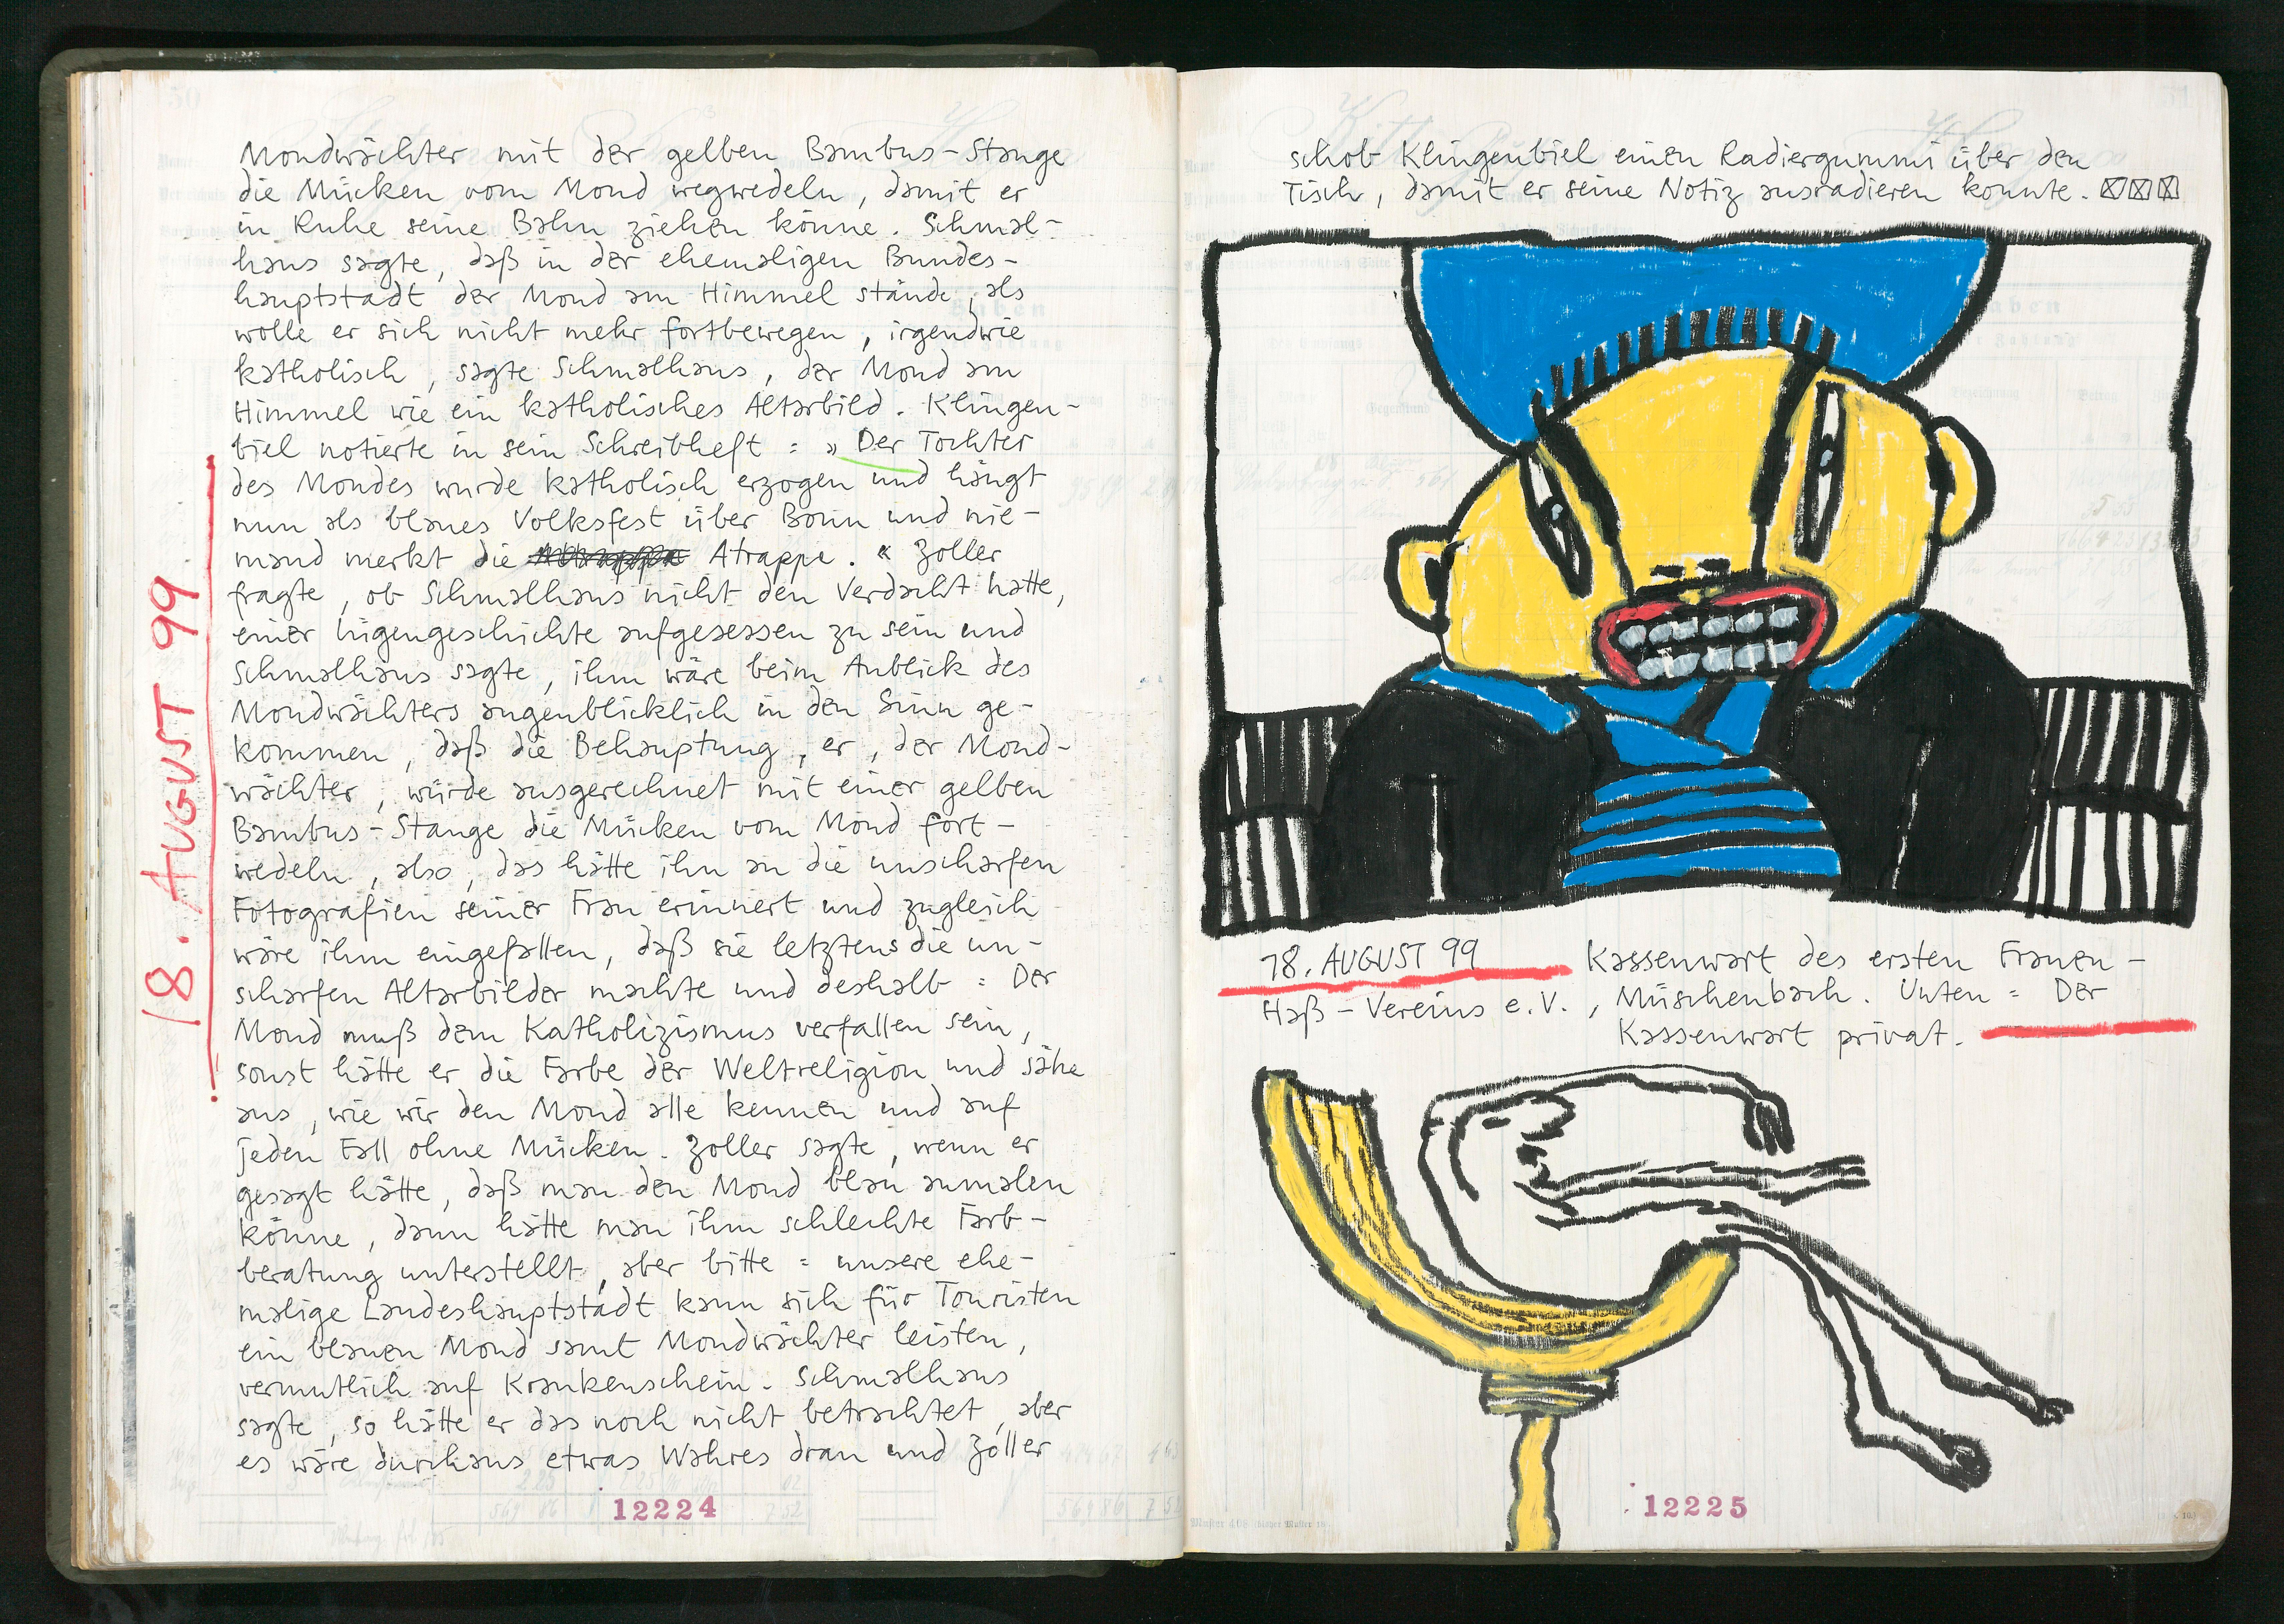 Mondwächter mit der gelben Bambus-Stange
die Mücken vom Mond wegwedeln, damit er
in Ruhe seine Bahn ziehen könne. Schmal-
haus sagte, daß in der ehemaligen Bundes-
hauptstadt der Mond am Himmel stände, als
wolle er sich nicht mehr fortbewegen, irgendwie
katholisch, sagte Schmalhaus, der Mond am
Himmel wie ein katholisches Altarbild. Klingen-
biel notierte in sein Schreibheft = » Der Tochter
des Mondes wurde katholisch erzogen und hängt
nun als blaues Volksfest über Bonn und nie-
mand merkt die Atrappe. « Zoller
fragte, ob Schmalhaus nicht den Verdacht hatte,
einer Lügengeschichte aufgesessen zu sein und
Schmalhaus sagte, ihm wäre beim Anblick des
Mondwächters augenblicklich in den Sinn ge-
kommen, daß die Behauptung, er, der Mond-
wächter, würde ausgerechnet mit einer gelben
Bambus-Stange die Mücken vom Mond fort-
wedeln, also, das hätte ihn an die unscharfen
Fotografien seiner Frau erinnert und zugleich
wäre ihm eingefallen, daß sie letztens die un-
scharfen Altarbilder machte und deshalb = Der
Mond muß dem Katholizismus verfallen sein,
sonst hätte er die Farbe der Weltreligion und sähe
aus, wie wir den Mond alle kennen und auf
jeden Fall ohne Mücken. Zoller sagte, wenn er
gesagt hätte, daß man den Mond blau anmalen
könne, dann hätte man ihm schlechte Farb-
beratung unterstellt, aber bitte = unsere ehe-
malige Landeshauptstadt kann sich für Touristen
ein blauen Mond samt Mondwächter leisten,
vermutlich auf Krankenschein. Schmalhaus
sagte, so hätte er das noch nicht betrachtet, aber
es wäre durchaus etwas Wahres dran und Zoller
18. AUGUST 99
12224
schob Klingenbiel einen Radiergummi über den
Tisch, damit er seine Notiz ausradieren konnte.
18. AUGUST 99 Kassenwart des ersten Frauen-
Haß-Vereins e.V., Müschenbach. Unten = Der
Kassenwart privat.
12225